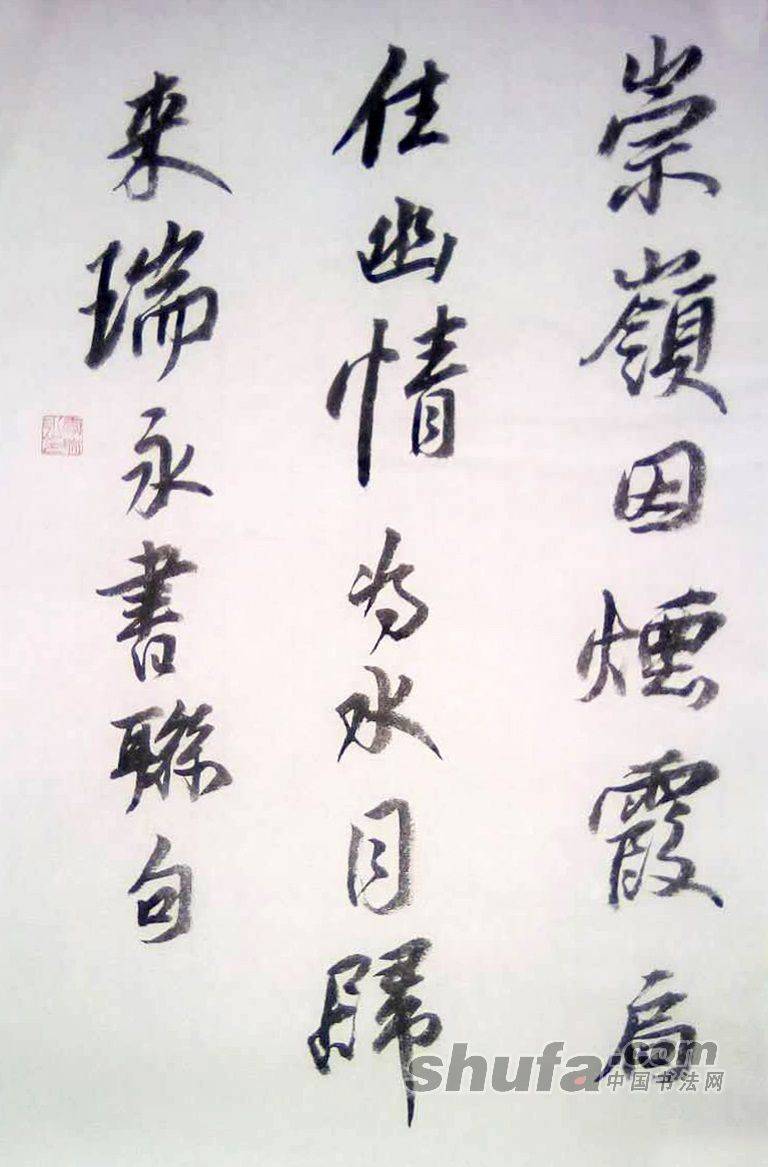 崇嶺因煙霞
住幽情为水月歸
来瑞永書聯句
shufa.com
中国书法网